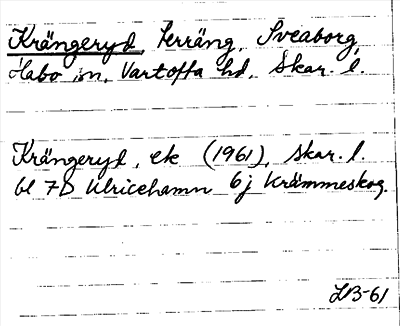 Krängeryd, terräng, Sveaborg,
Habo sn, Vartofta hd, Skar. l.
Krängeryd, ek (1961), Skar. l.
bl 7D Ulricehamn 6j Krämmeskog.
LB-61